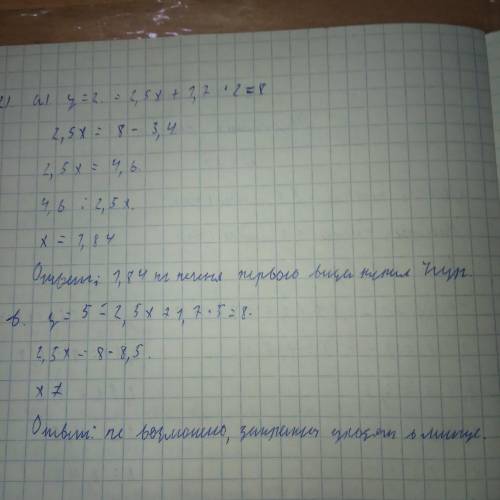 а) y=2. = 2,5x + 1,7 · 2 = 8
2,5x = 8 - 3,4
2,5x = 4,6
4,6 : 2,5x.
x = 1,84
Ответ: 1,84 кг печенья первого вида купил
в. y = 5 = 2,5x + 1,7 · 5 = 8.
2,5x = 8 - 8,5.
x
Ответ: не возможно, уходят в минус.